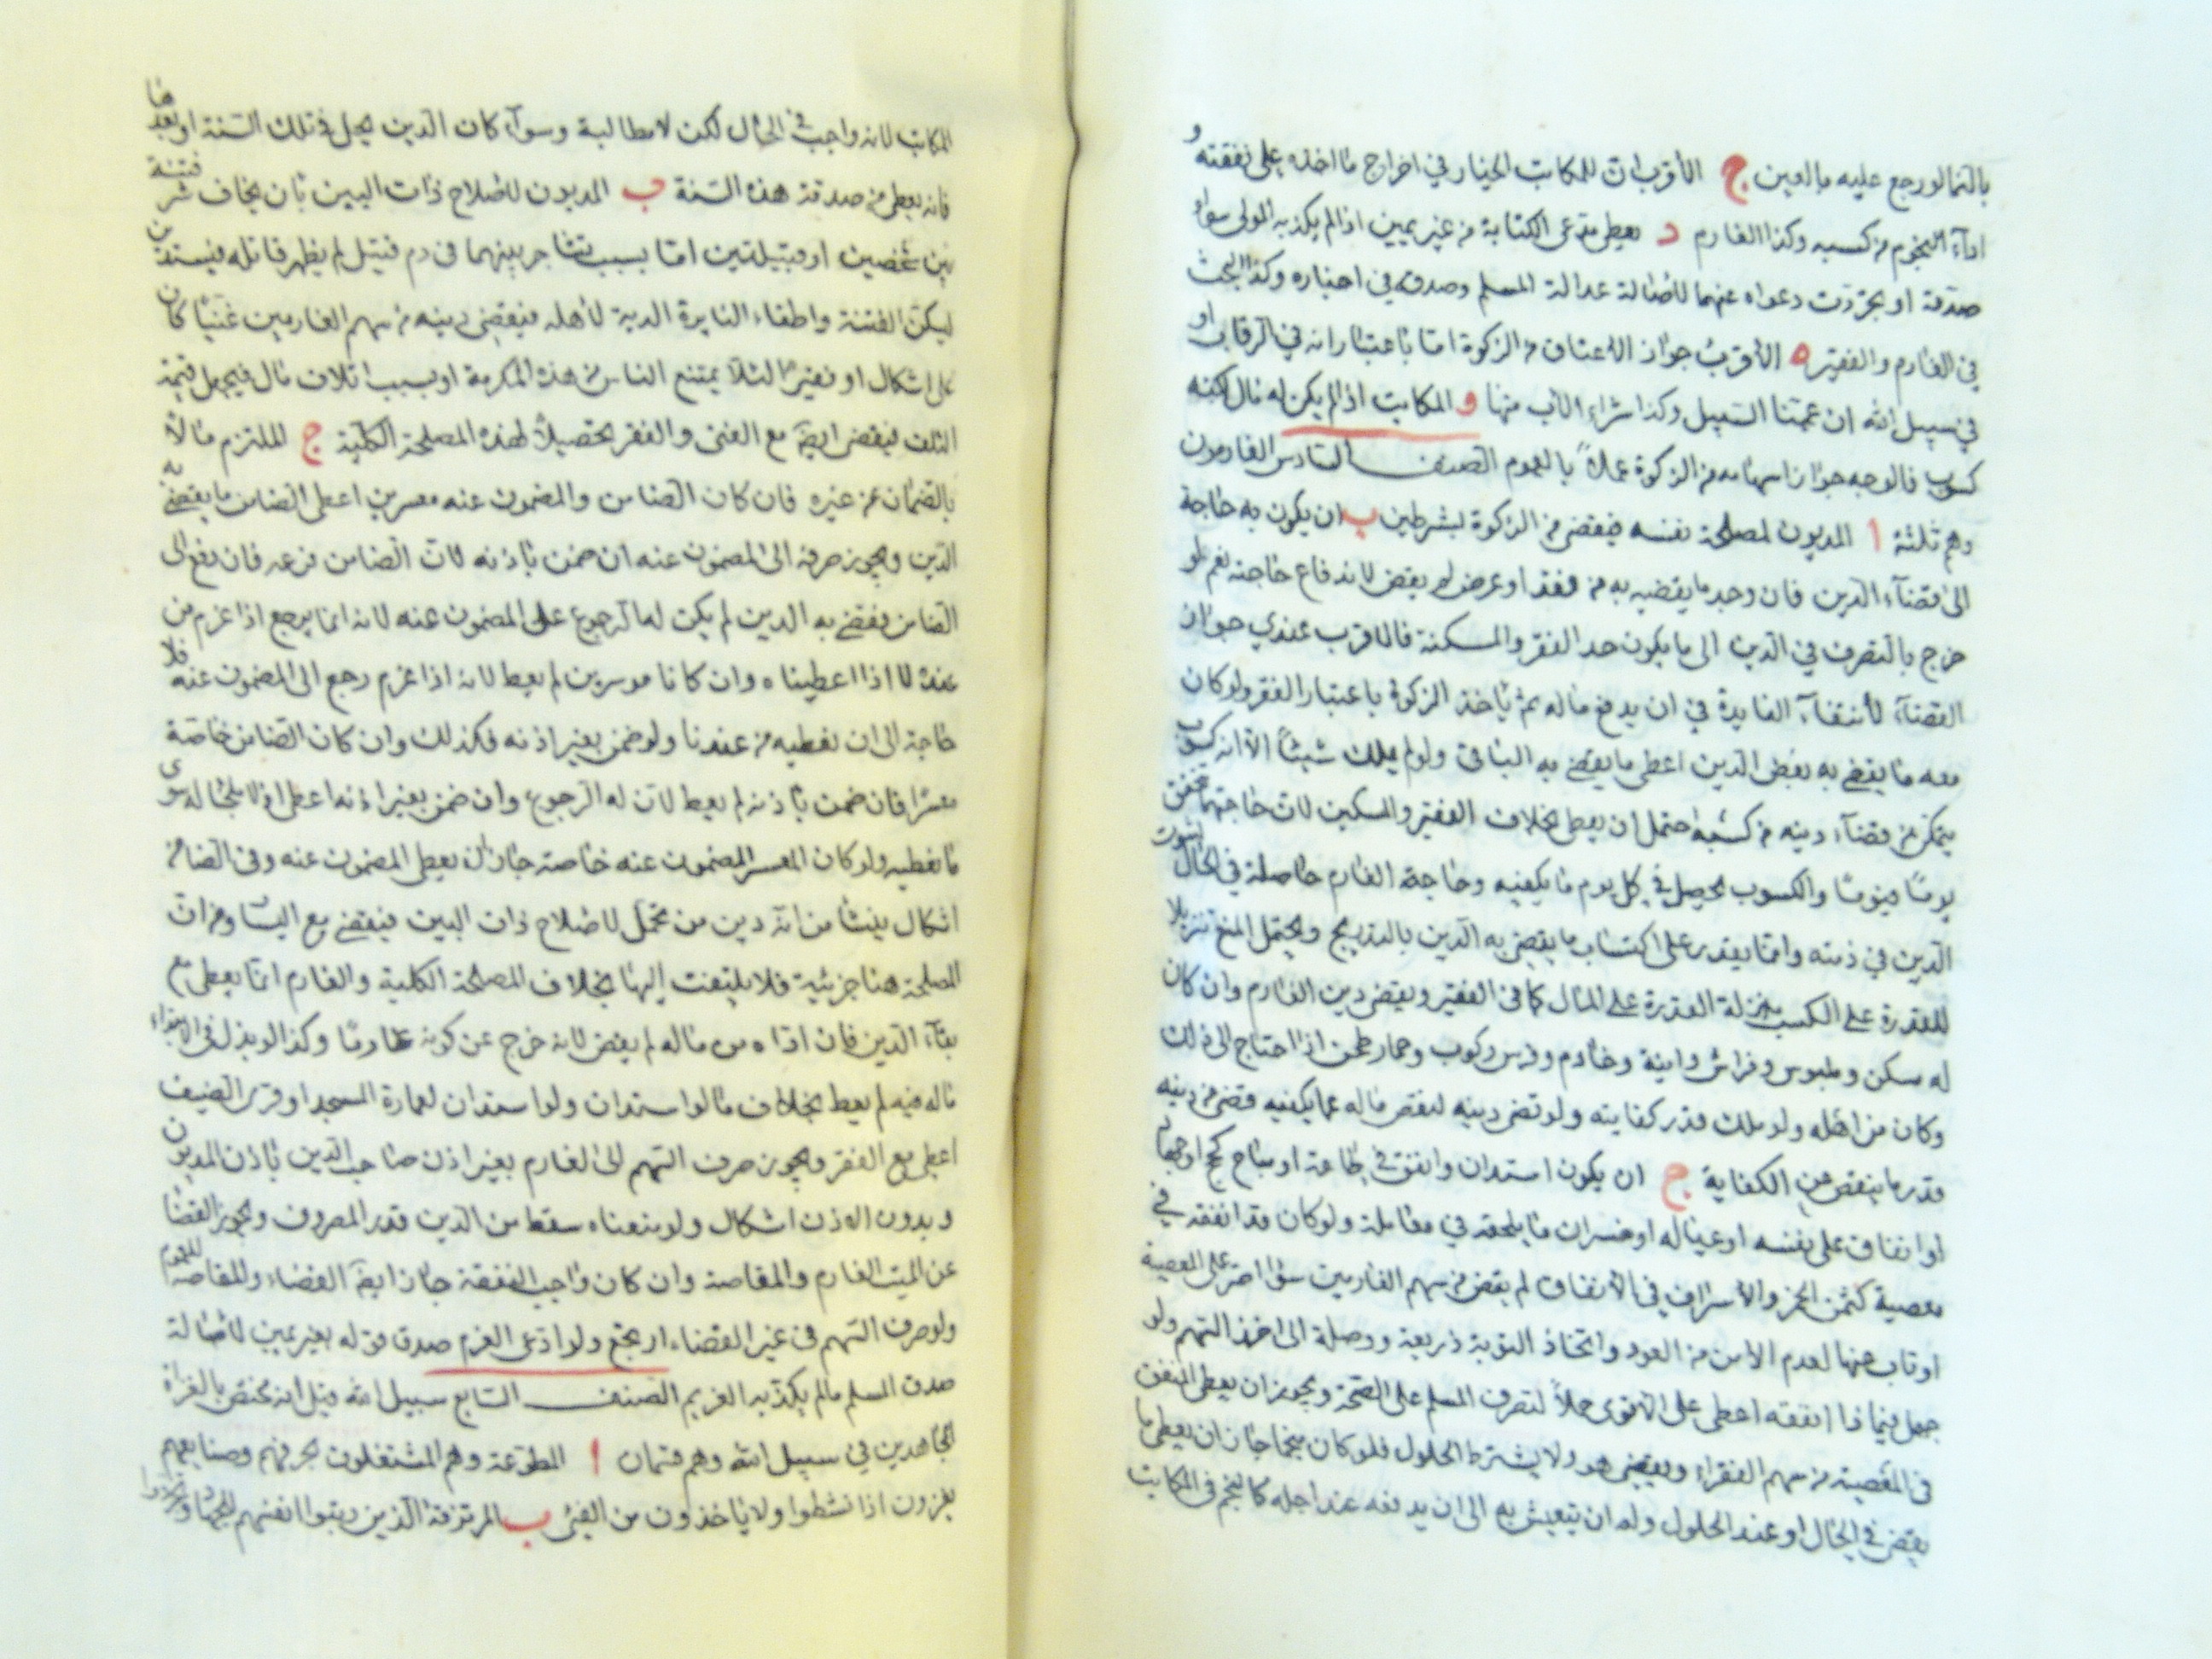 بالنما لو رجع عليه بالعين ج الأقرب ان للمكاتب الخيار في اخراج ما اخذه على نفقته و
اداء النجوم من كسبه وكذا الغارم د يعطى مدعى الكتابة من غير يمين اذا لم يكذبه المولى سواء
صدقه او تجردت دعواه عنهما لأصالة عدالة المسلم وصدقه في اخباره وكذا البحث
في الغارم والفقير ه الأقرب جواز الاعتاق من الزكوة اما باعتبار انه في الرقاب او
في سبيل الله ان عممنا السبيل وكذا شراء الأب منها و المكاتب اذا لم يكن له مال لكنه
كسوب فالوجه جواز اسهامه من الزكوة عملاً بالعموم الصنف السادس الغارمون
وهم ثلثة ا المديون لمصلحة نفسه فيقضى من الزكوة بشرطين ب ان يكون به حاجة
الى قضاء الدين فان وجد ما يقضيه به من نقد او عرض لم يقض لاندفاع حاجته نعم لو
خرج بالتصرف في الدين الى ما يكون حد الفقر والمسكنة فالاقرب عندي جواز
القضاء لأنتفاء الفايدة في ان يدفع ماله ثم يأخذ الزكوة باعتبار الفقر ولو كان
معه ما يقضى به بعض الدين اعطى ما يقضى به الباقى ولو لم يملك شيئاً الا انه كسوب
يتمكن من قضاء دينه من كسبه احتمل ان يعطى بخلاف الفقير والمسكين لان حاجتهما تتحقق
يوماً فيوماً والكسوب يحصل في كل يوم ما يكفيه وحاجة الغارم حاصلة في الحال لثبوت
الدين في ذمته وانما يقدر على اكتساب ما يقضى به الدين بالتدريج ويحتمل المنع تنزيلا
للقدرة على الكسب بمنزلة القدرة على المال كما في الفقير ويقضى دين الغارم وان كان
له مسكن وملبوس وفراش وانية وخادم وفرس ركوب وحمار طحن اذا احتاج الى ذلك
وكان من اهله ولو ملك قدر كفايته ولو قضى دينه لنقص ماله عما يكفيه قضى من دينه
قدر ما ينقص عن الكفاية ج ان يكون استدان وانفق في طاعة او مباح كحج او جهاد
او انفاق على نفسه او عياله او خسران ما يلحقه في معاملة ولو كان قد انفقه في
معصية كثمن الخمر والأسراف في الأنفاق لم يقض من سهم الغارمين سواء اصر على المعصية
او تاب عنها لعدم الامن من العود واتخاذ التوبة ذريعة ووصلة الى اخذ السهم ولو
جهل فيما ذا انفقه اعطى على الاقوى حملاً لتصرف المسلم على الصحة ويجوز ان يعطى المنفق
في المعصية من سهم الفقراء ويقضى هو ولا يشترط الحلول فلو كان منجما جاز ان يعطى ما
يقضى في الحال او عند الحلول وله ان يتعيش به الى ان يدفعه عند اجله كالنجم في المكاتب
المكاتب لانه واجب في الحال لكن لا مطالبة وسواء كان الدين يحل في تلك السنة او بعدها
فانه يعطى من صدقة هذه السنة ب المديون لاصلاح ذات البين بان يخاف شر فتنة
بين شخصين او قبيلتين اما بسبب تشاجر بينهما في دم قتيل لم يظهر قاتله فيستدين
ليسكن الفتنة واطفاء النايرة الدية لأهله فيقضى دينه من سهم الغارمين غنيا كان
على اشكال او فقيرا لئلا يمتنع الناس من هذه المكرمة او بسبب اتلاف مال فيجهل قيمة
التلف فيقضى ايضا مع الغنى والفقر تحصيلاً لهذه المصلحة الكلية ج الملتزم مالا
بالضمان عن غيره فان كان الضامن والمضمون عنه معسرين اعطى الضامن ما يقضى به
الدين ويجوز صرفه الى المضمون عنه ان ضمن باذنه لان الضامن فرعه فان دفع الى
الضامن فقضى به الدين لم يكن له الرجوع على المضمون عنه لانه انما يرجع اذا غرم من
عنده لا اذا اعطيناه وان كانا موسرين لم يعط لانه اذا غرم رجع الى المضمون عنه فلا
حاجة الى ان نعطيه من عندنا ولو ضمن بغير اذنه فكذلك وان كان الضامن خاصة
معسرا فان ضمن باذنه لم يعط لان له الرجوع وان ضمن بغير اذنه اعطى اذ لا ملجأ له سوى
ما نعطيه ولو كان المعسر المضمون عنه خاصة جاز ان يعطى المضمون عنه وفي الضامن
اشكال ينشأ من انه دين من تحمل لاصلاح ذات البين فيقضى مع اليسار ومن ان
المصلحة هنا جزئية فلا يلتفت اليها بخلاف المصلحة الكلية والغارم انما يعطى مع
بقاء الدين فان اداه من ماله لم يقض لانه خرج عن كونه غارما وكذا لو بذل في الابتداء
ماله فيه لم يعط بخلاف ما لو استدان ولو استدان لعمارة المسجد او قرى الضيف
اعطى مع الفقر ويجوز صرف السهم الى الغارم بغير اذن صاحب الدين باذن المديون
وبدون الاذن اشكال ولو منعناه سقط من الدين قدر المصروف ويجوز القضا
عن الميت الغارم والمقاصة وان كان واجب النفقة جاز ايضا القضاء والمقاصة للعموم
ولو صرف السهم في غير القضاء ارتجع ولو ادعى الغرم صدق قوله بغير يمين لأصالة
صدق المسلم ما لم يكذبه الغريم الصنف السابع سبيل الله قيل انه مختص بالغزاة
المجاهدين في سبيل الله وهم قسمان ا المطوعة وهم المشتغلون بحرفهم وصنايعهم
يغزون اذا نشطوا ولا يأخذون من الفيئ ب المرتزقة الذين رتبوا انفسهم للجهاد